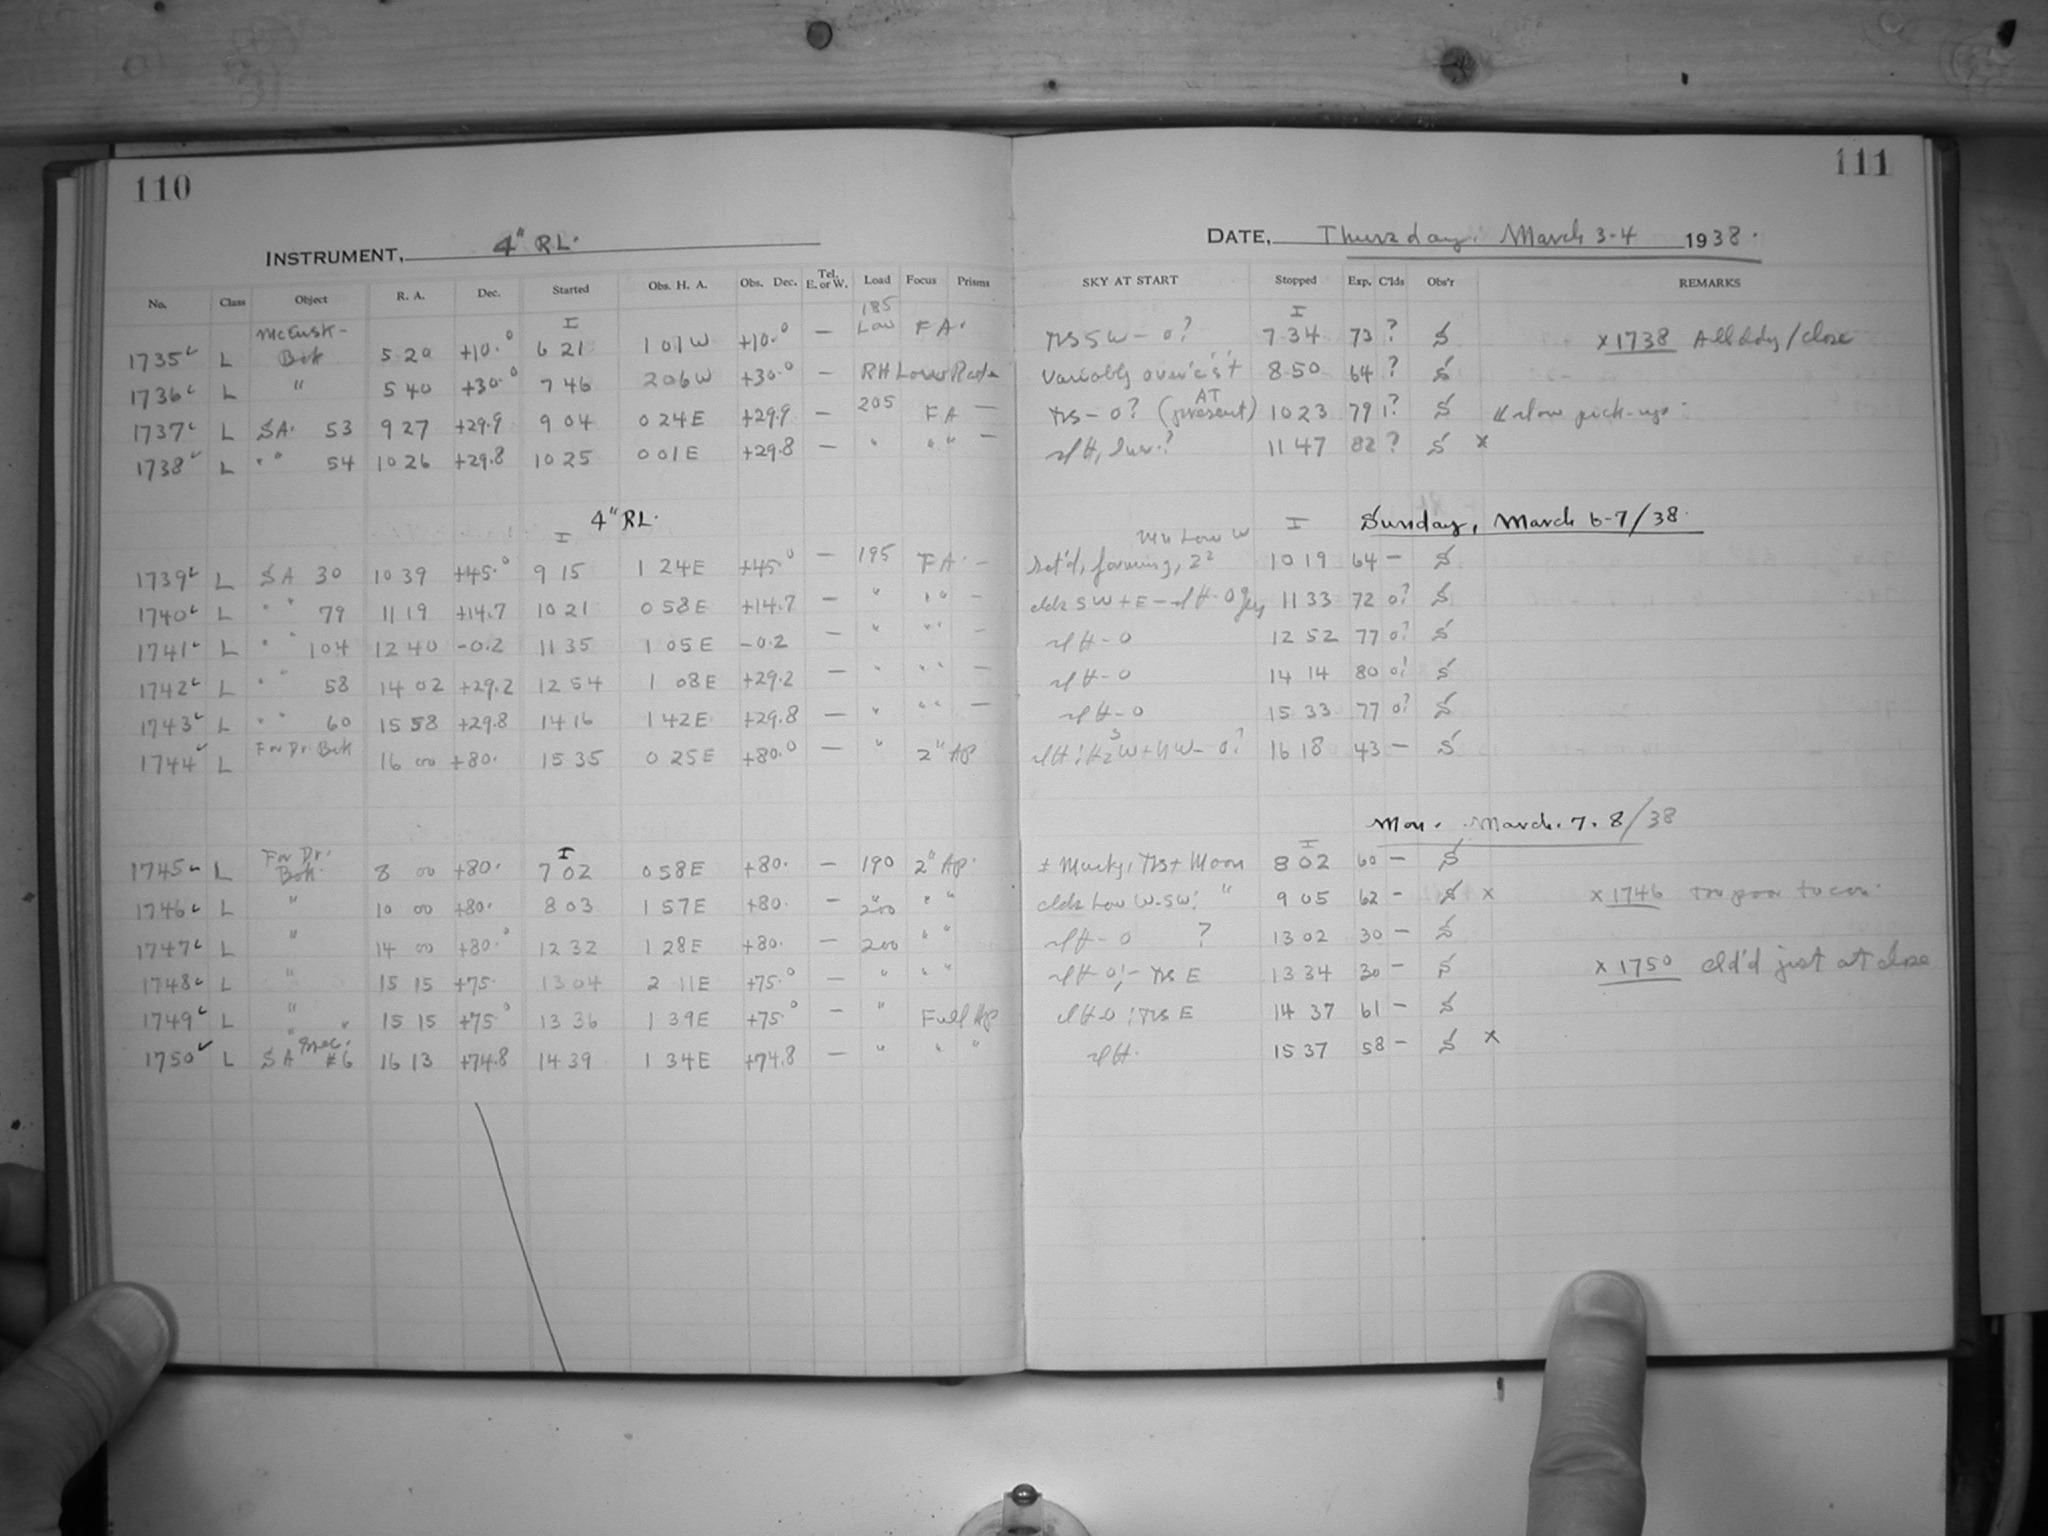 110
111
INSTRUMENT, 4" RL.
DATE, Thursday, March 3-4 1938.
No. Class Object R. A. Dec. Started Obs. H. A. Obs. Dec. Tel. E. or W. Load Focus Prisms SKY AT START Stopped Exp. C'lds Obs'r REMARKS
1735 L McCusk-Bok 5 20 +10.0 6 21 1 07 W +10.0 — 185 Low FA. 7 34 73 ? S x 1738 close
1736 L " 5 40 +30.0 7 46 2 06 W +30.0 — RH Variably 8 50 64 ? S
1737 L SA. 53 9 27 +29.9 9 04 0 24 E +29.9 — 205 FA — (AT present) 10 23 79 1? S slow pick-ups
1738 L " " 54 10 26 +29.8 10 25 0 01 E +29.8 — " " " — 11 47 82 ? S x
4" RL. Sunday, March 6-7/38.
1739 L SA 30 10 39 +45.0 9 15 1 24 E +45.0 — 195 FA. — forming, 10 19 64 — S
1740 L " " 79 11 19 +14.7 10 21 0 58 E +14.7 — " " " — clds SW + E 11 33 72 0? S
1741 L " " 104 12 40 -0.2 11 35 1 05 E -0.2 — " " " — 12 52 77 0? S
1742 L " " 58 14 02 +29.2 12 54 1 08 E +29.2 — " " " — 14 14 80 0? S
1743 L " " 60 15 58 +29.8 14 16 1 42 E +29.8 — " " " — 15 33 77 0? S
1744 L For Dr Bok 16 00 +80. 15 35 0 25 E +80.0 — " 2" Ap 16 18 43 — S
Mon. March. 7-8/38
1745 L For Dr. Bok. 8 00 +80. 7 02 0 58 E +80. — 190 2" Ap. Moon 8 02 60 — S
1746 L " 10 00 +80. 8 03 1 57 E +80. — 200 " " clds Low W-SW: " 9 05 62 — S x x 1746 too poor to
1747 L " 14 00 +80.0 12 32 1 28 E +80. — 200 " " ? 13 02 30 — S
1748 L " 15 15 +75. 13 04 2 11 E +75.0 — " " " 13 34 30 — S x 1750 cld'd just at close
1749 L " 15 15 +75.0 13 36 1 39 E +75.0 — " Full Ap 14 37 61 — S
1750 L SA #6 16 13 +74.8 14 39 1 34 E +74.8 — " " " 15 37 58 — S x